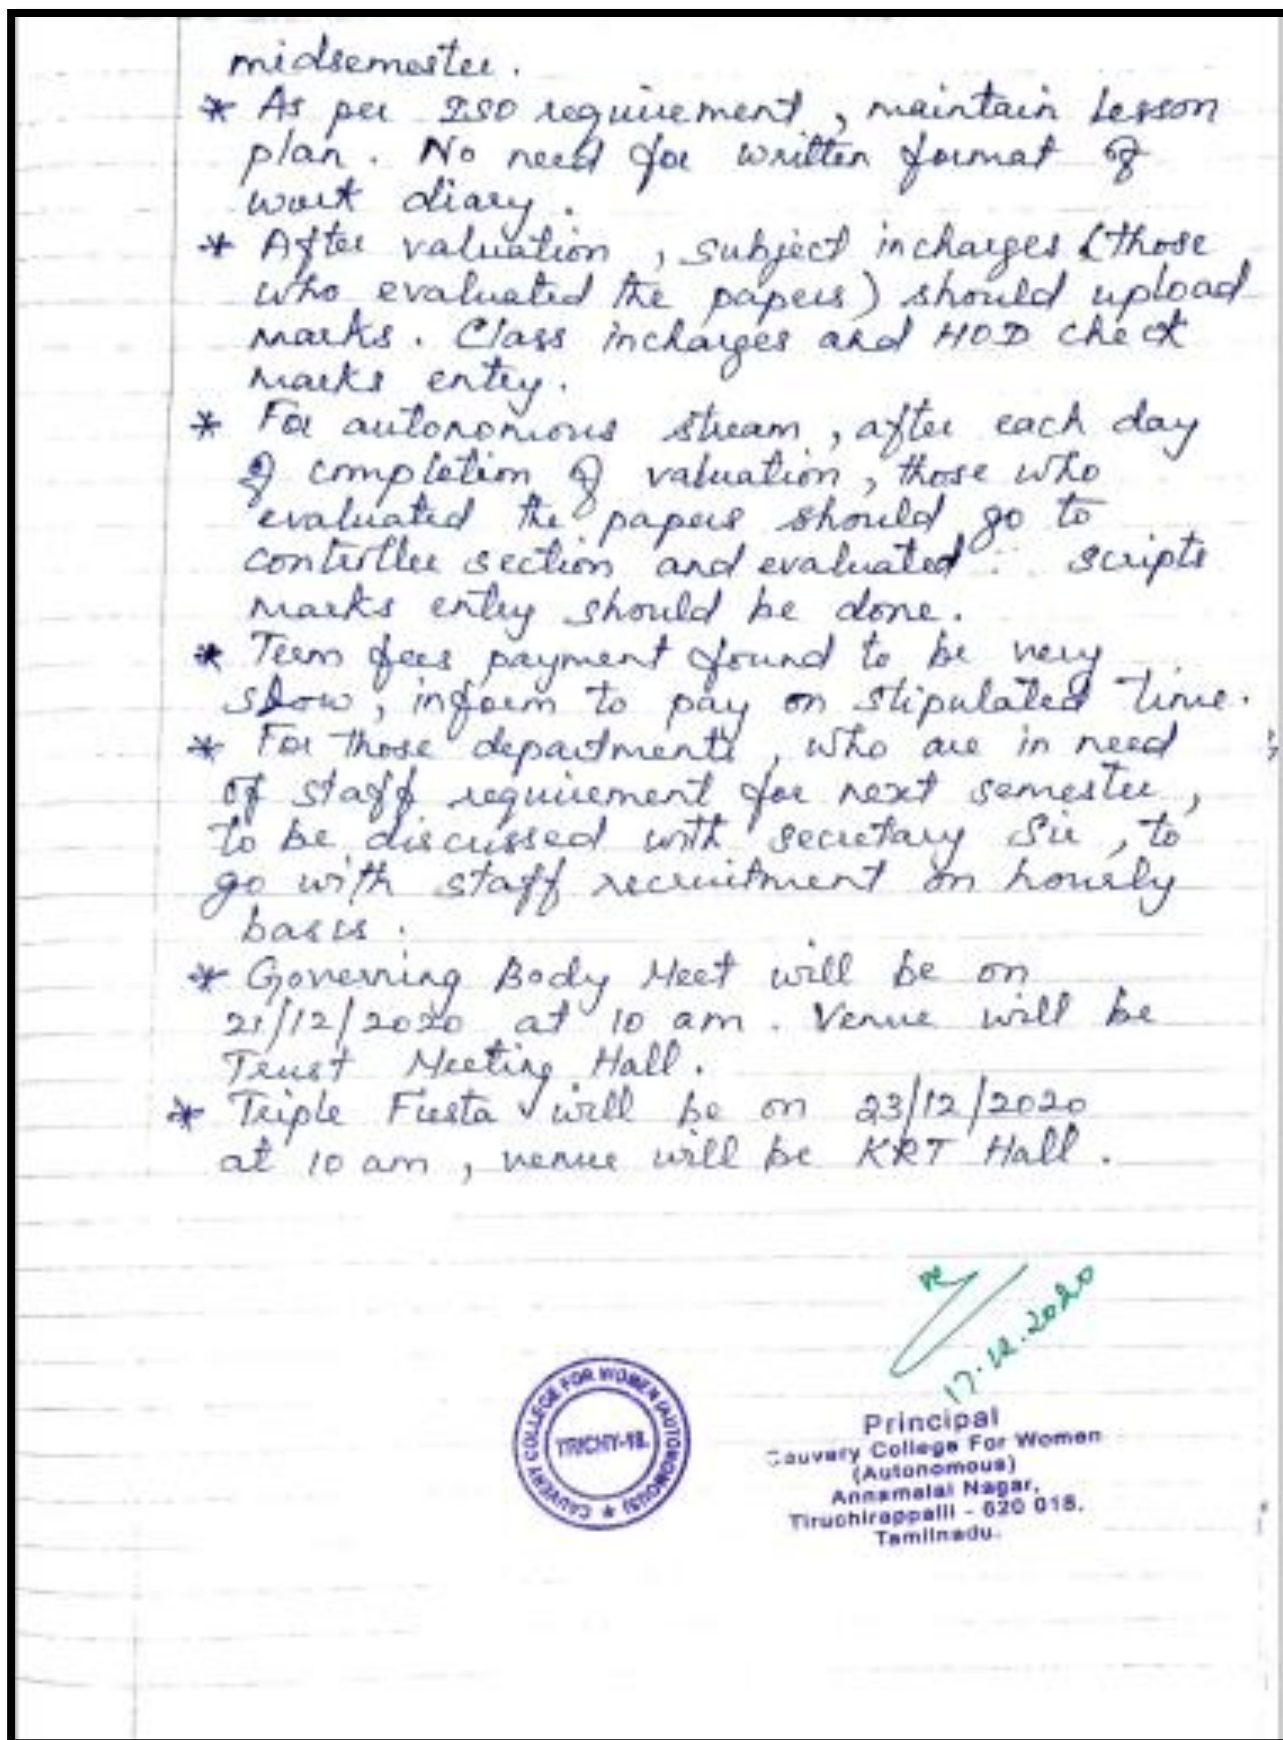 midsemester.
* As per ISO requirement, maintain Lesson
plan. No need for written format of
work diary.
* After valuation, subject incharges (those
who evaluated the papers) should upload
marks. Class incharges and HOD check
marks entry.
* For autonomious stream, after each day
of completion of valuation, those who
evaluated the papers should go to
controller section and evaluated scripts
marks entry should be done.
* Term fees payment found to be very
slow, inform to pay on stipulated time.
* For those departments, who are in need
of staff requirement for next semester,
to be discussed with secretary Sir, to
go with staff recruitment on hourly
basis.
* Governing Body Meet will be on
21/12/2020 at 10 am. Venue will be
Trust Meeting Hall.
* Triple Fiesta will be on 23/12/2020
at 10 am, venue will be KRT Hall.
17.12.2020
CAUVERY COLLEGE FOR WOMEN (AUTONOMOUS) *
TRICHY-18.
Principal
Cauvery College For Women
(Autonomous)
Annamalai Nagar,
Tiruchirappalli - 620 018.
Tamilnadu.